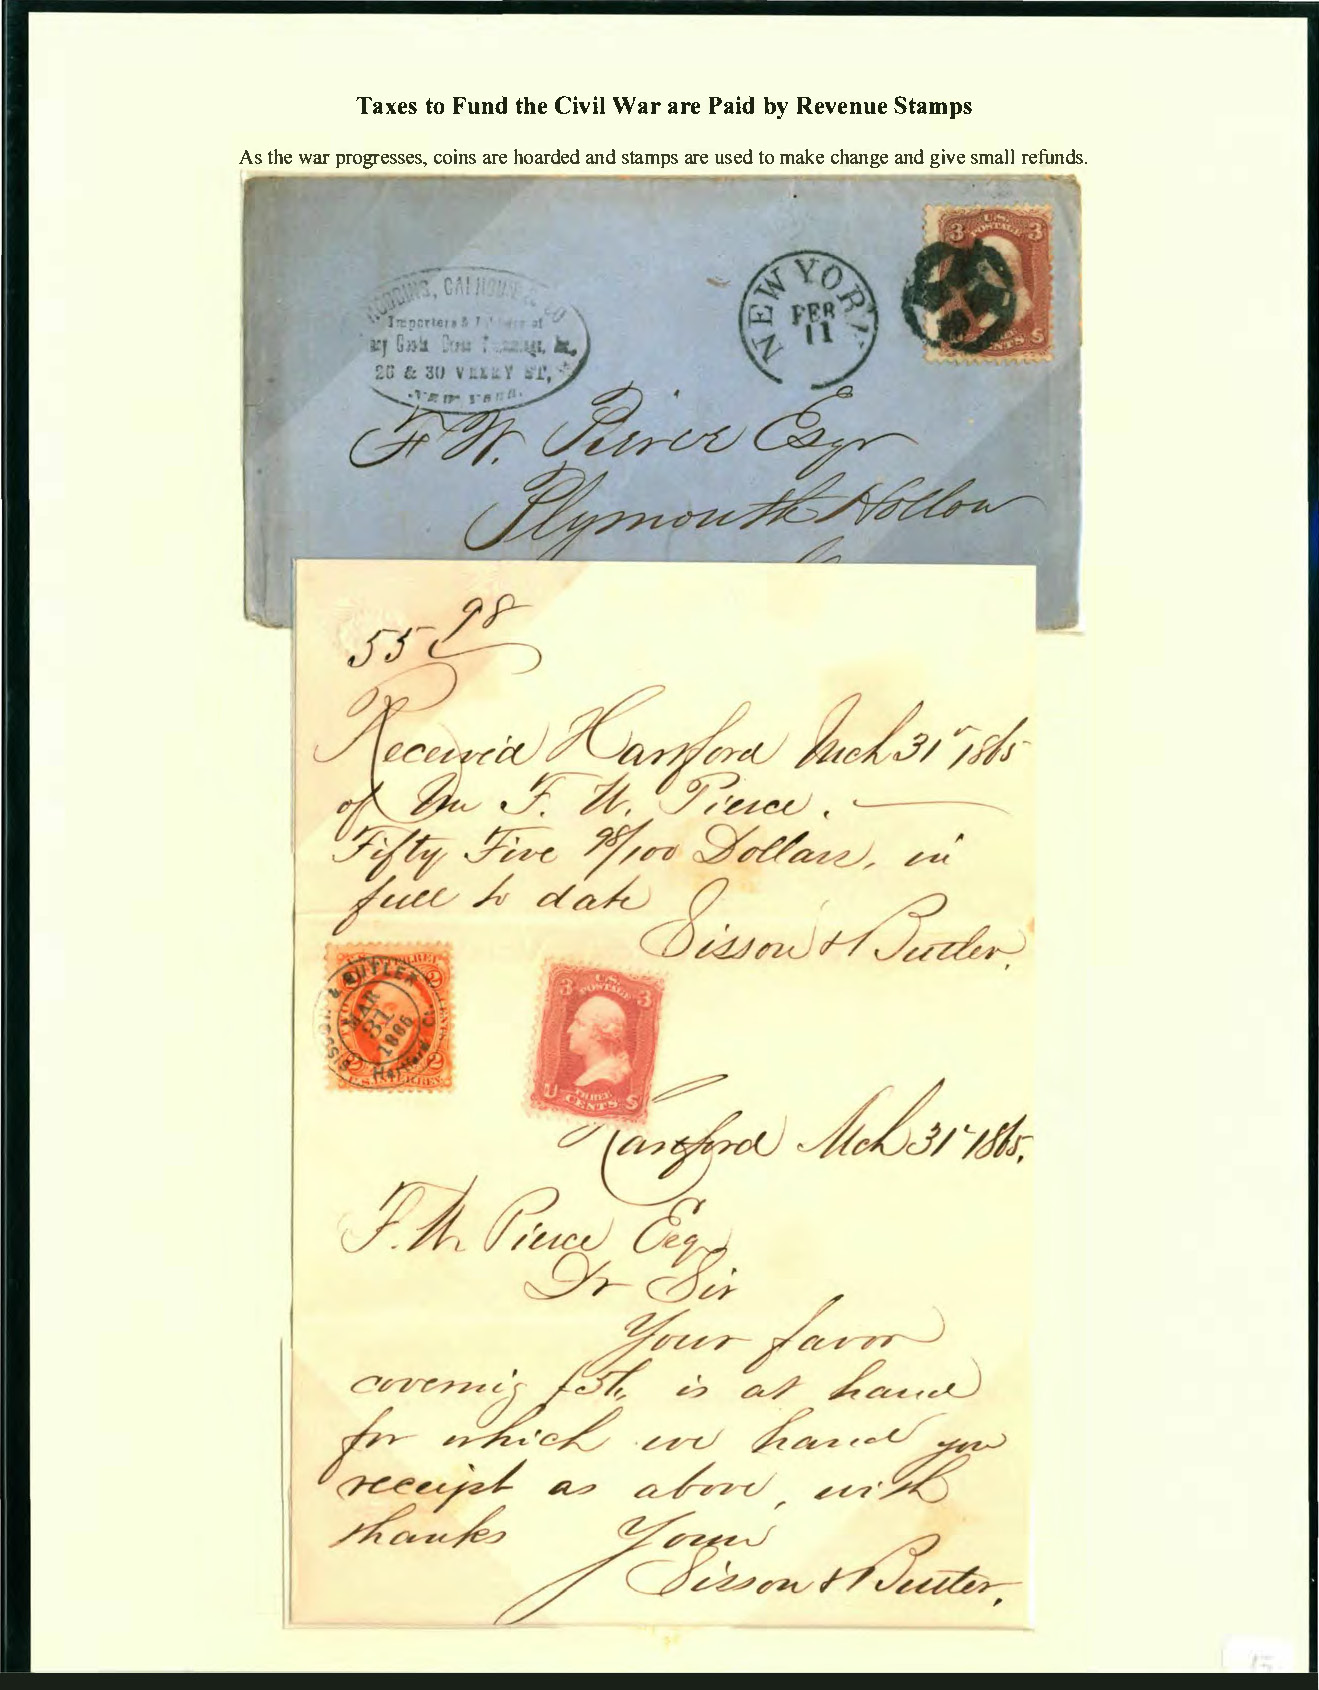 Taxes to Fund the Civil War are Paid by Revenue Stamps
As the war progresses, coins are hoarded and stamps are used to make change and give small refunds.
CALHOUN & CO
Importers &
26 & 30 VESEY ST,
NEW YORK.
NEW YORK
FEB
11
U.S.
POSTAGE
3 3
CENTS
S
F. W. Peirce Esqr
Plymouth Hollow
55 98
Received Hartford Mch 31st 1865
of Mr F. W. Pierce.
Fifty Five 98/100 Dollars, in
full to date
Sisson & Butler.
SISSON & BUTLER
MAR
31
1865
Hartford Ct.
U.S. INTER. REV.
2 2
CENTS
U.S. INTER. REV.
U.S.
POSTAGE
3 3
U S
THREE
CENTS
Hartford Mch 31st 1865.
F. W. Pierce Esq
Dr Sir
Your favor
covering is at hand
for which we hand you
receipt as above, with
thanks Yours
Sisson & Butler.